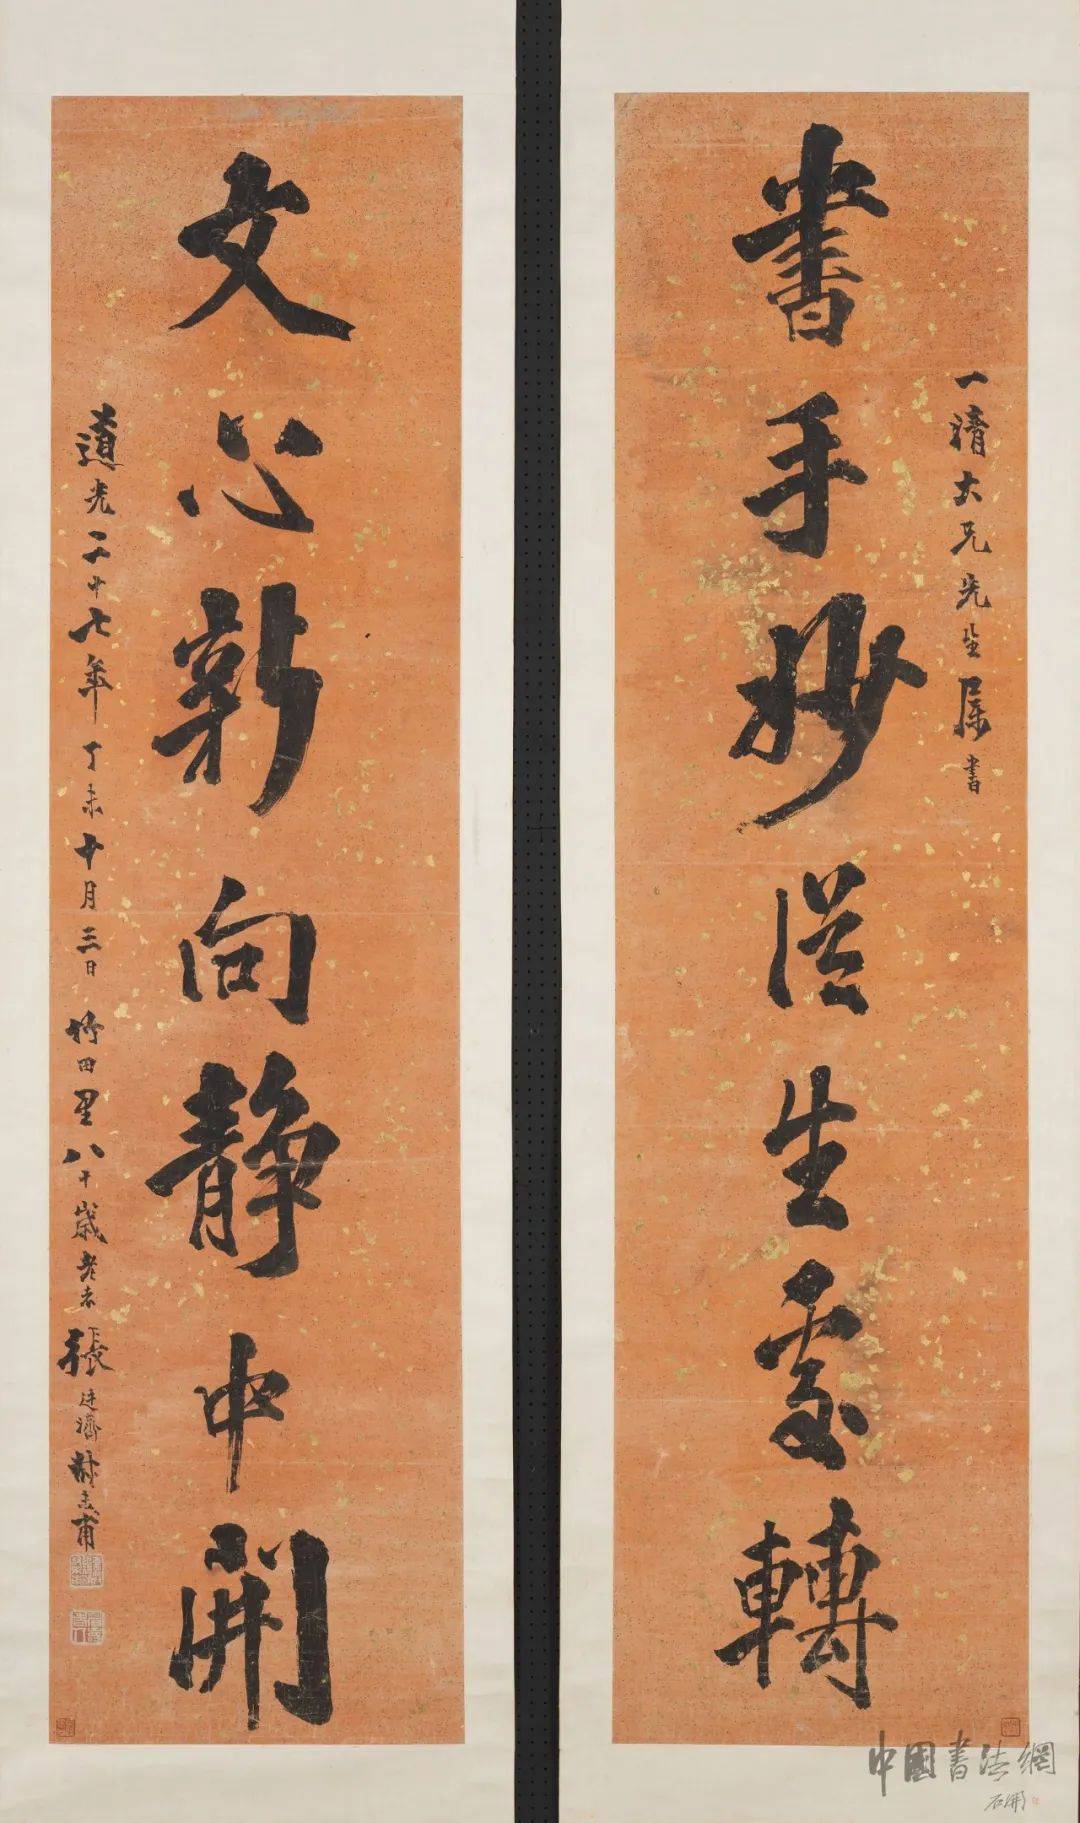 書手妙從生處轉
一清大兄先生屬書
文心新向靜中開
道光二十七年丁未十月三日竹田里八十歲老者張廷濟叔未甫
中國書法網